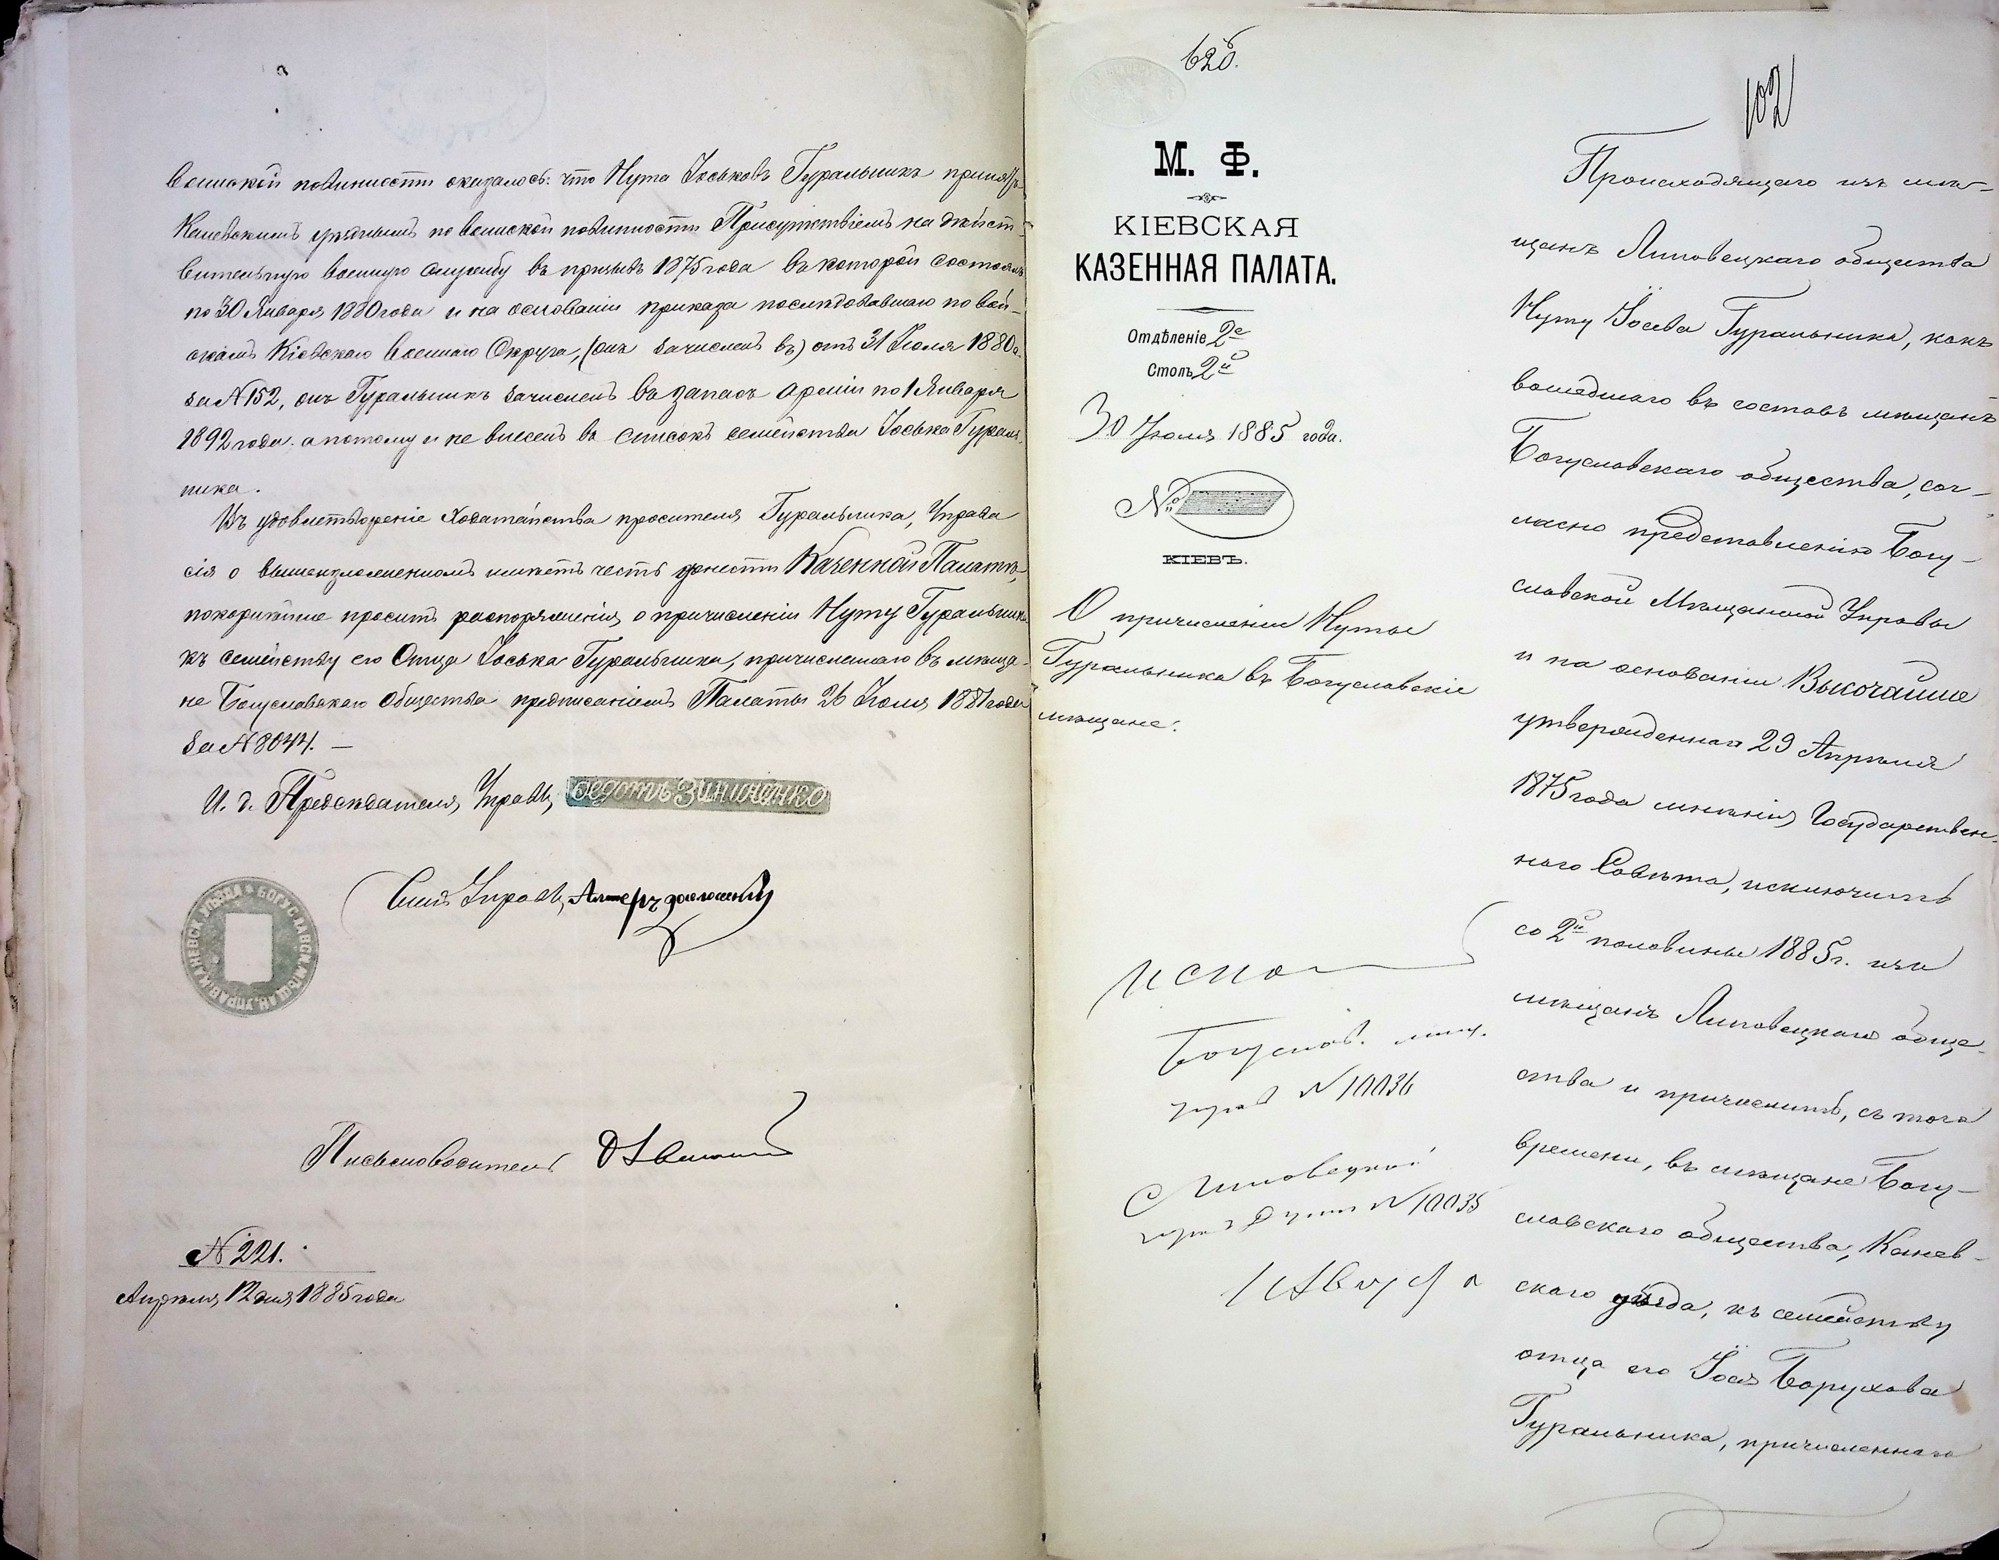 воинской повинности оказалось: что Нута Іоськовъ Гуральникъ принятъ
Каневскимъ уѣзднымъ по воинской повинности Присутствіемъ на дѣйст-
вительную военную службу въ призывъ 1875 года въ которой состоялъ
по 30 Января 1880 года и на основаніи приказа послѣдовавшаго по вой-
скамъ Кіевскаго военнаго Округа, (онъ зачисленъ въ) отъ 31 Іюля 1880 г.
за № 152, онъ Гуральникъ зачисленъ въ запасъ арміи по 1 Января
1892 года. а потому и не внесенъ въ списокъ семейства Іоська Гураль-
ника.
Въ удовлетвореніе ходатайства просителя Гуральника, Управа
сія о вышеизложенномъ имѣетъ честь донести Казенной Палатѣ,
покорнѣйше проситъ распоряженія о причисленіи Нуту Гуральника
къ семейству его Отца Іоська Гуральника, причисленнаго въ мѣща-
не Богуславскаго Общества предписаніемъ Палаты 26 Іюля 1881 года
за № 8044. —
И. д. Предсѣдателя Управы Федотъ Зиниченко
Членъ Управы
БОГУСЛАВСК. МѢЩАН. УПРАВ. КАНЕВСК. УѢЗДА
Письмоводитель
№ 221.
Апрѣля 12 дня 1885 года
62б.
102
М. Ф.
КІЕВСКАЯ
КАЗЕННАЯ ПАЛАТА.
Отдѣленіе 2е
Столъ 2й
30 Іюля 1885 года.
№
КІЕВЪ.
О причисленіи Нуты
Гуральника въ Богуславскіе
мѣщане.
испо
Богуслав. мѣщ.
управ № 10036
Липовецкой
гор. Думѣ № 10035
1 Августа
Происходящаго изъ мѣ-
щанъ Липовецкаго общества
Нуту Іосева Гуральника, какъ
вошедшаго въ составъ мѣщанъ
Богуславскаго общества, сог-
ласно представленію Богу-
славской Мѣщанской Управы
и на основаніи Высочайше
утвержденнаго 29 Апрѣля
1875 года мнѣнія Государствен-
наго Совѣта, исключить
со 2й половины 1885 г. изъ
мѣщанъ Липовецкаго обще-
ства и причислить, съ того
времени, въ мѣщане Богу-
славскаго общества, Канев-
скаго уѣзда, къ семейству
отца его Іося Борухова
Гуральника, причисленнаго